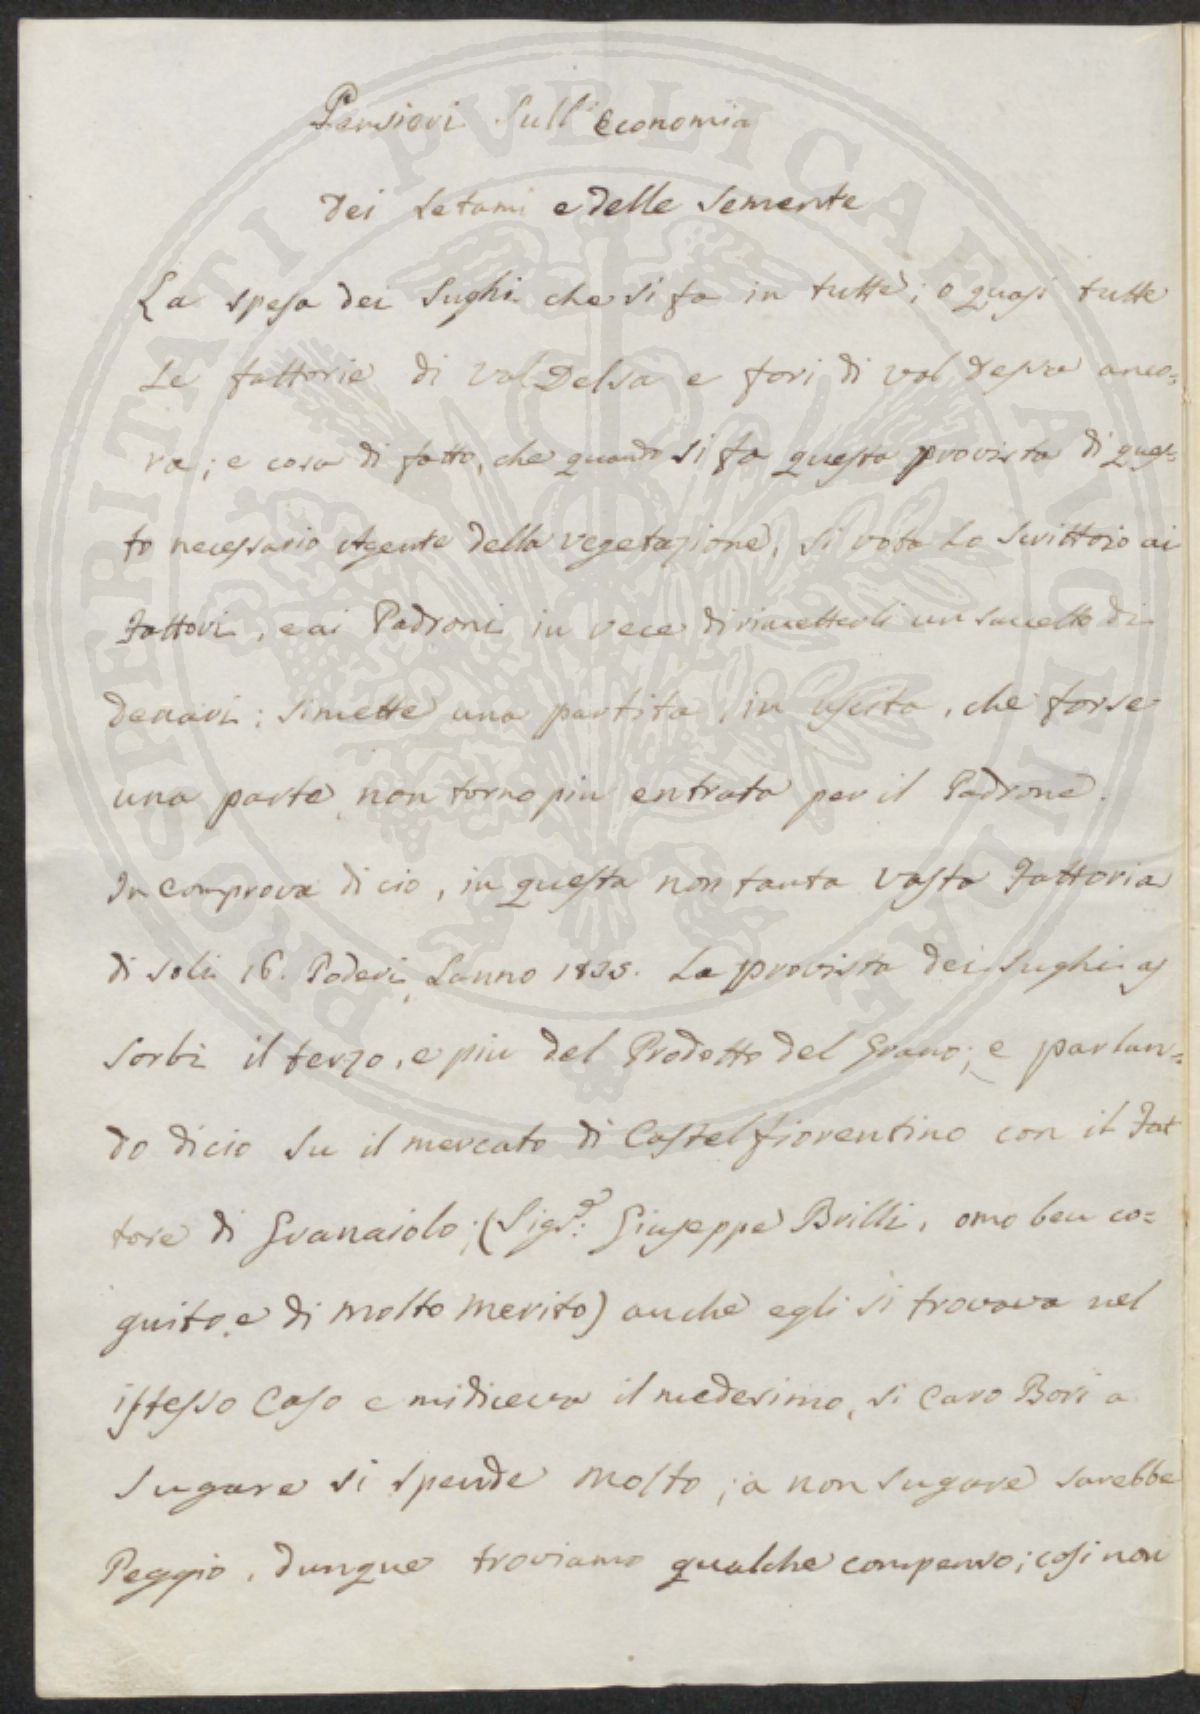 Pensieri Sull'Economia
Dei Letami e delle Semente
La spesa dei Sughi che si fa in tutte; o quasi tutte
Le fattorie di Val Delsa e fori di val depsa anco=
ra; e cosa di fatto, che quando si fa questa provista di ques=
to necessario Agente della vegetazione, si vota Lo Scrittoio ai
Fattori, e ai Padroni in vece di rimetterli un sacchetto di
Denari: si mette una partita in uscita, che forse
una parte, non torna piu entrata per il Padrone.
In comprova di cio, in questa non tanta vasta Fattoria
di soli 16. Poderi, Lanno 1835. La provista dei Sughi as
sorbi il terzo, e piu del Prodotto del Grano; e parlan=
do di cio su il mercato di Castelfiorentino con il Fat
tore di Granaiolo; (Sigr.e: Giuseppe Brilli, omo ben co=
gnito, e di molto merito) anche egli si trovava nel
istesso Caso e mi diceva il medesimo, si Caro Bori a
Sugare si spende molto; a non sugare sarebbe
Peggio, dunque troviamo qualche compenso; cosi non
PROSPERITATI PVBLICAE AVGENDAE